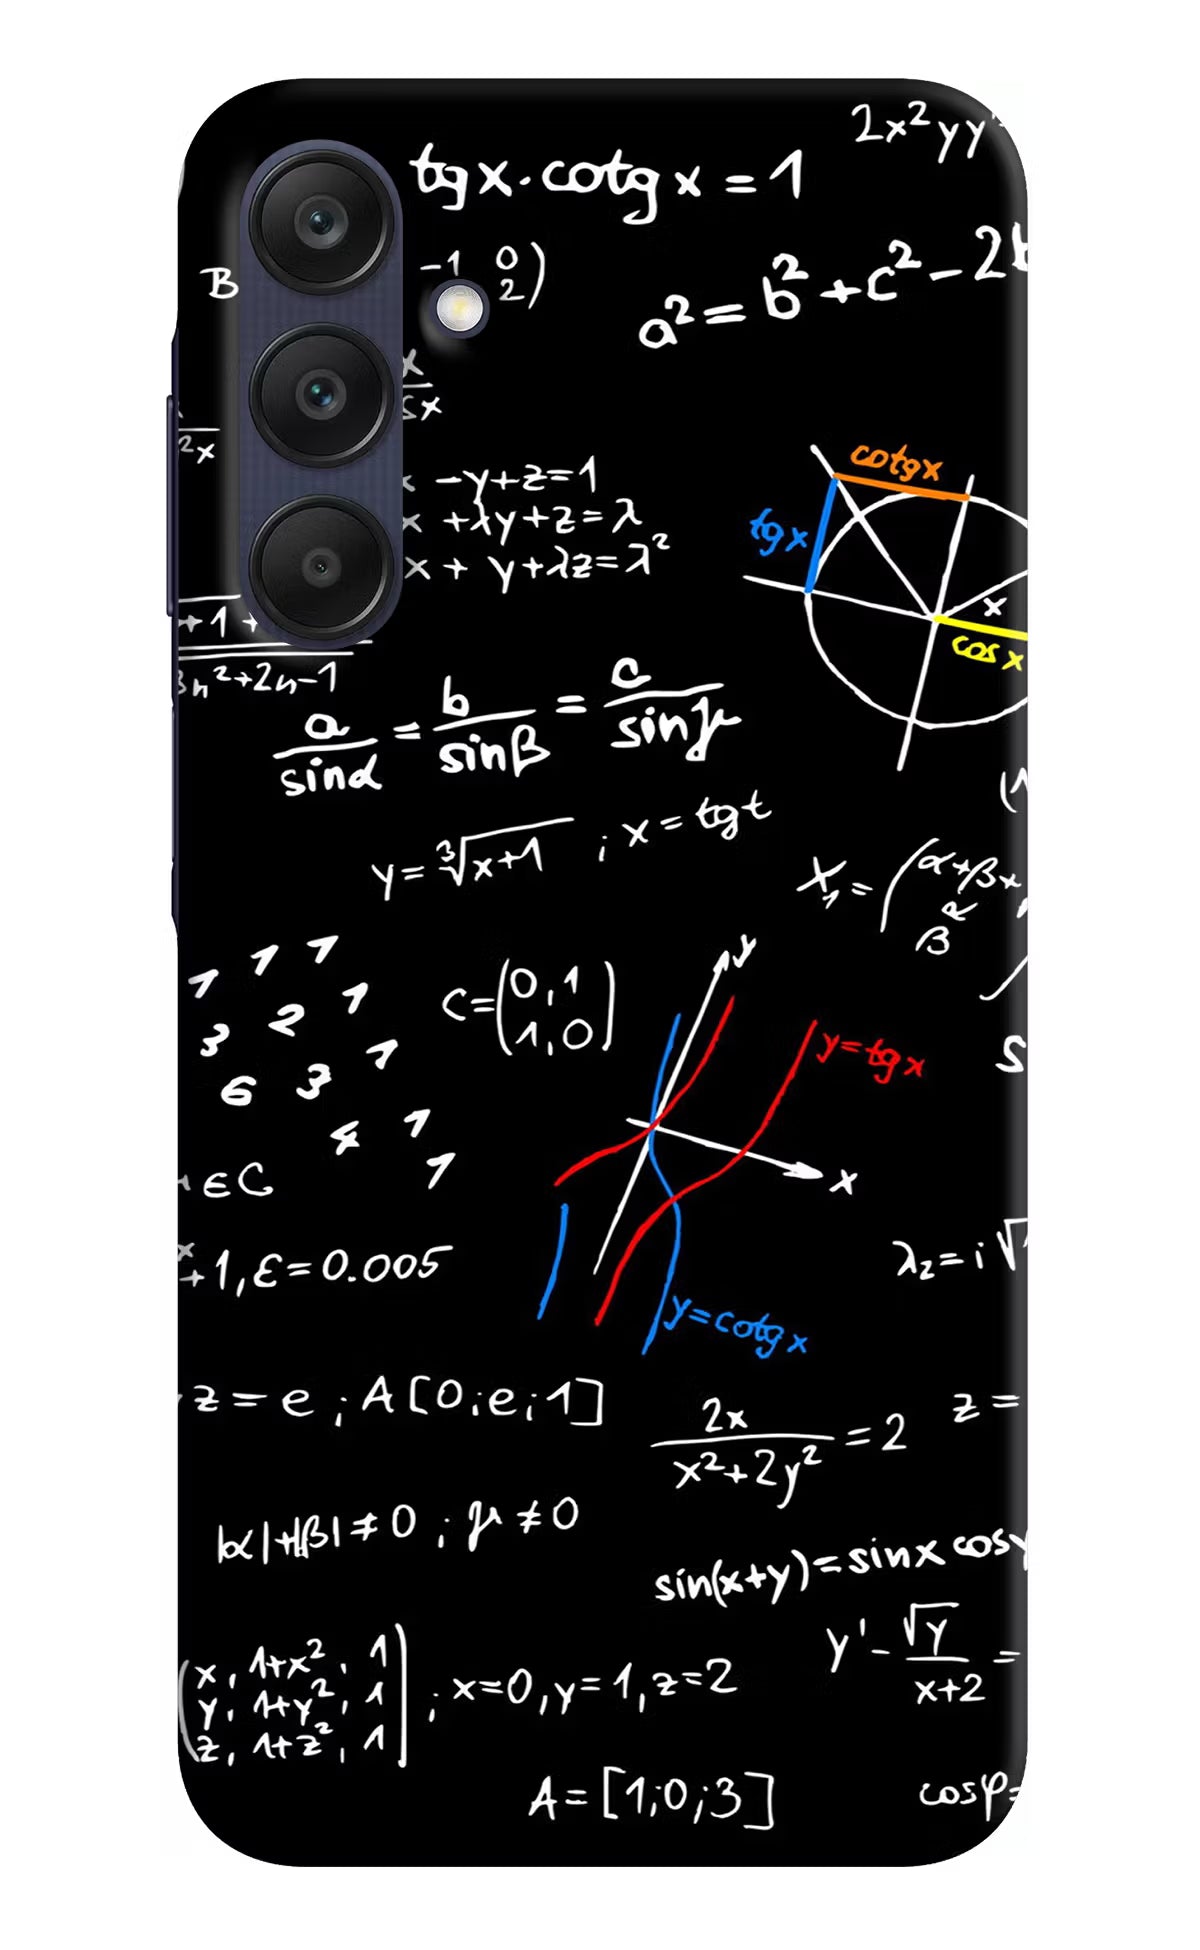 2x²yy'
tgx·cotgx=1
B
-1 0
2)
a²=b²+c²-2
x
2x
5x
-y+z=1
x+λy+z=λ
x+y+λz=λ²
cotgx
tgx
x
cosx
+1+
3n²+2n-1
a/sinα = b/sinβ = c/sinγ
y=∛x+1 ; x=tgt
X₁=(α+β+
β R
1 1 1
1 2 3
6 3 1
4 1
1
C=(0,1
1,0)
y
y=tgx
S
x
∈C
+1,ε=0.005
λ₂=i√
y=cotgx
z=e ; A[0;e;1]
2x/x²+2y²=2
z=
|α|+|β|≠0 ; μ≠0
sin(x+y)=sinx cosy
y'-√y/x+2=
(x, 1+x², 1
y, 1+y², 1
z, 1+z², 1) ; x=0,y=1,z=2
A=[1;0;3]
cosφ=